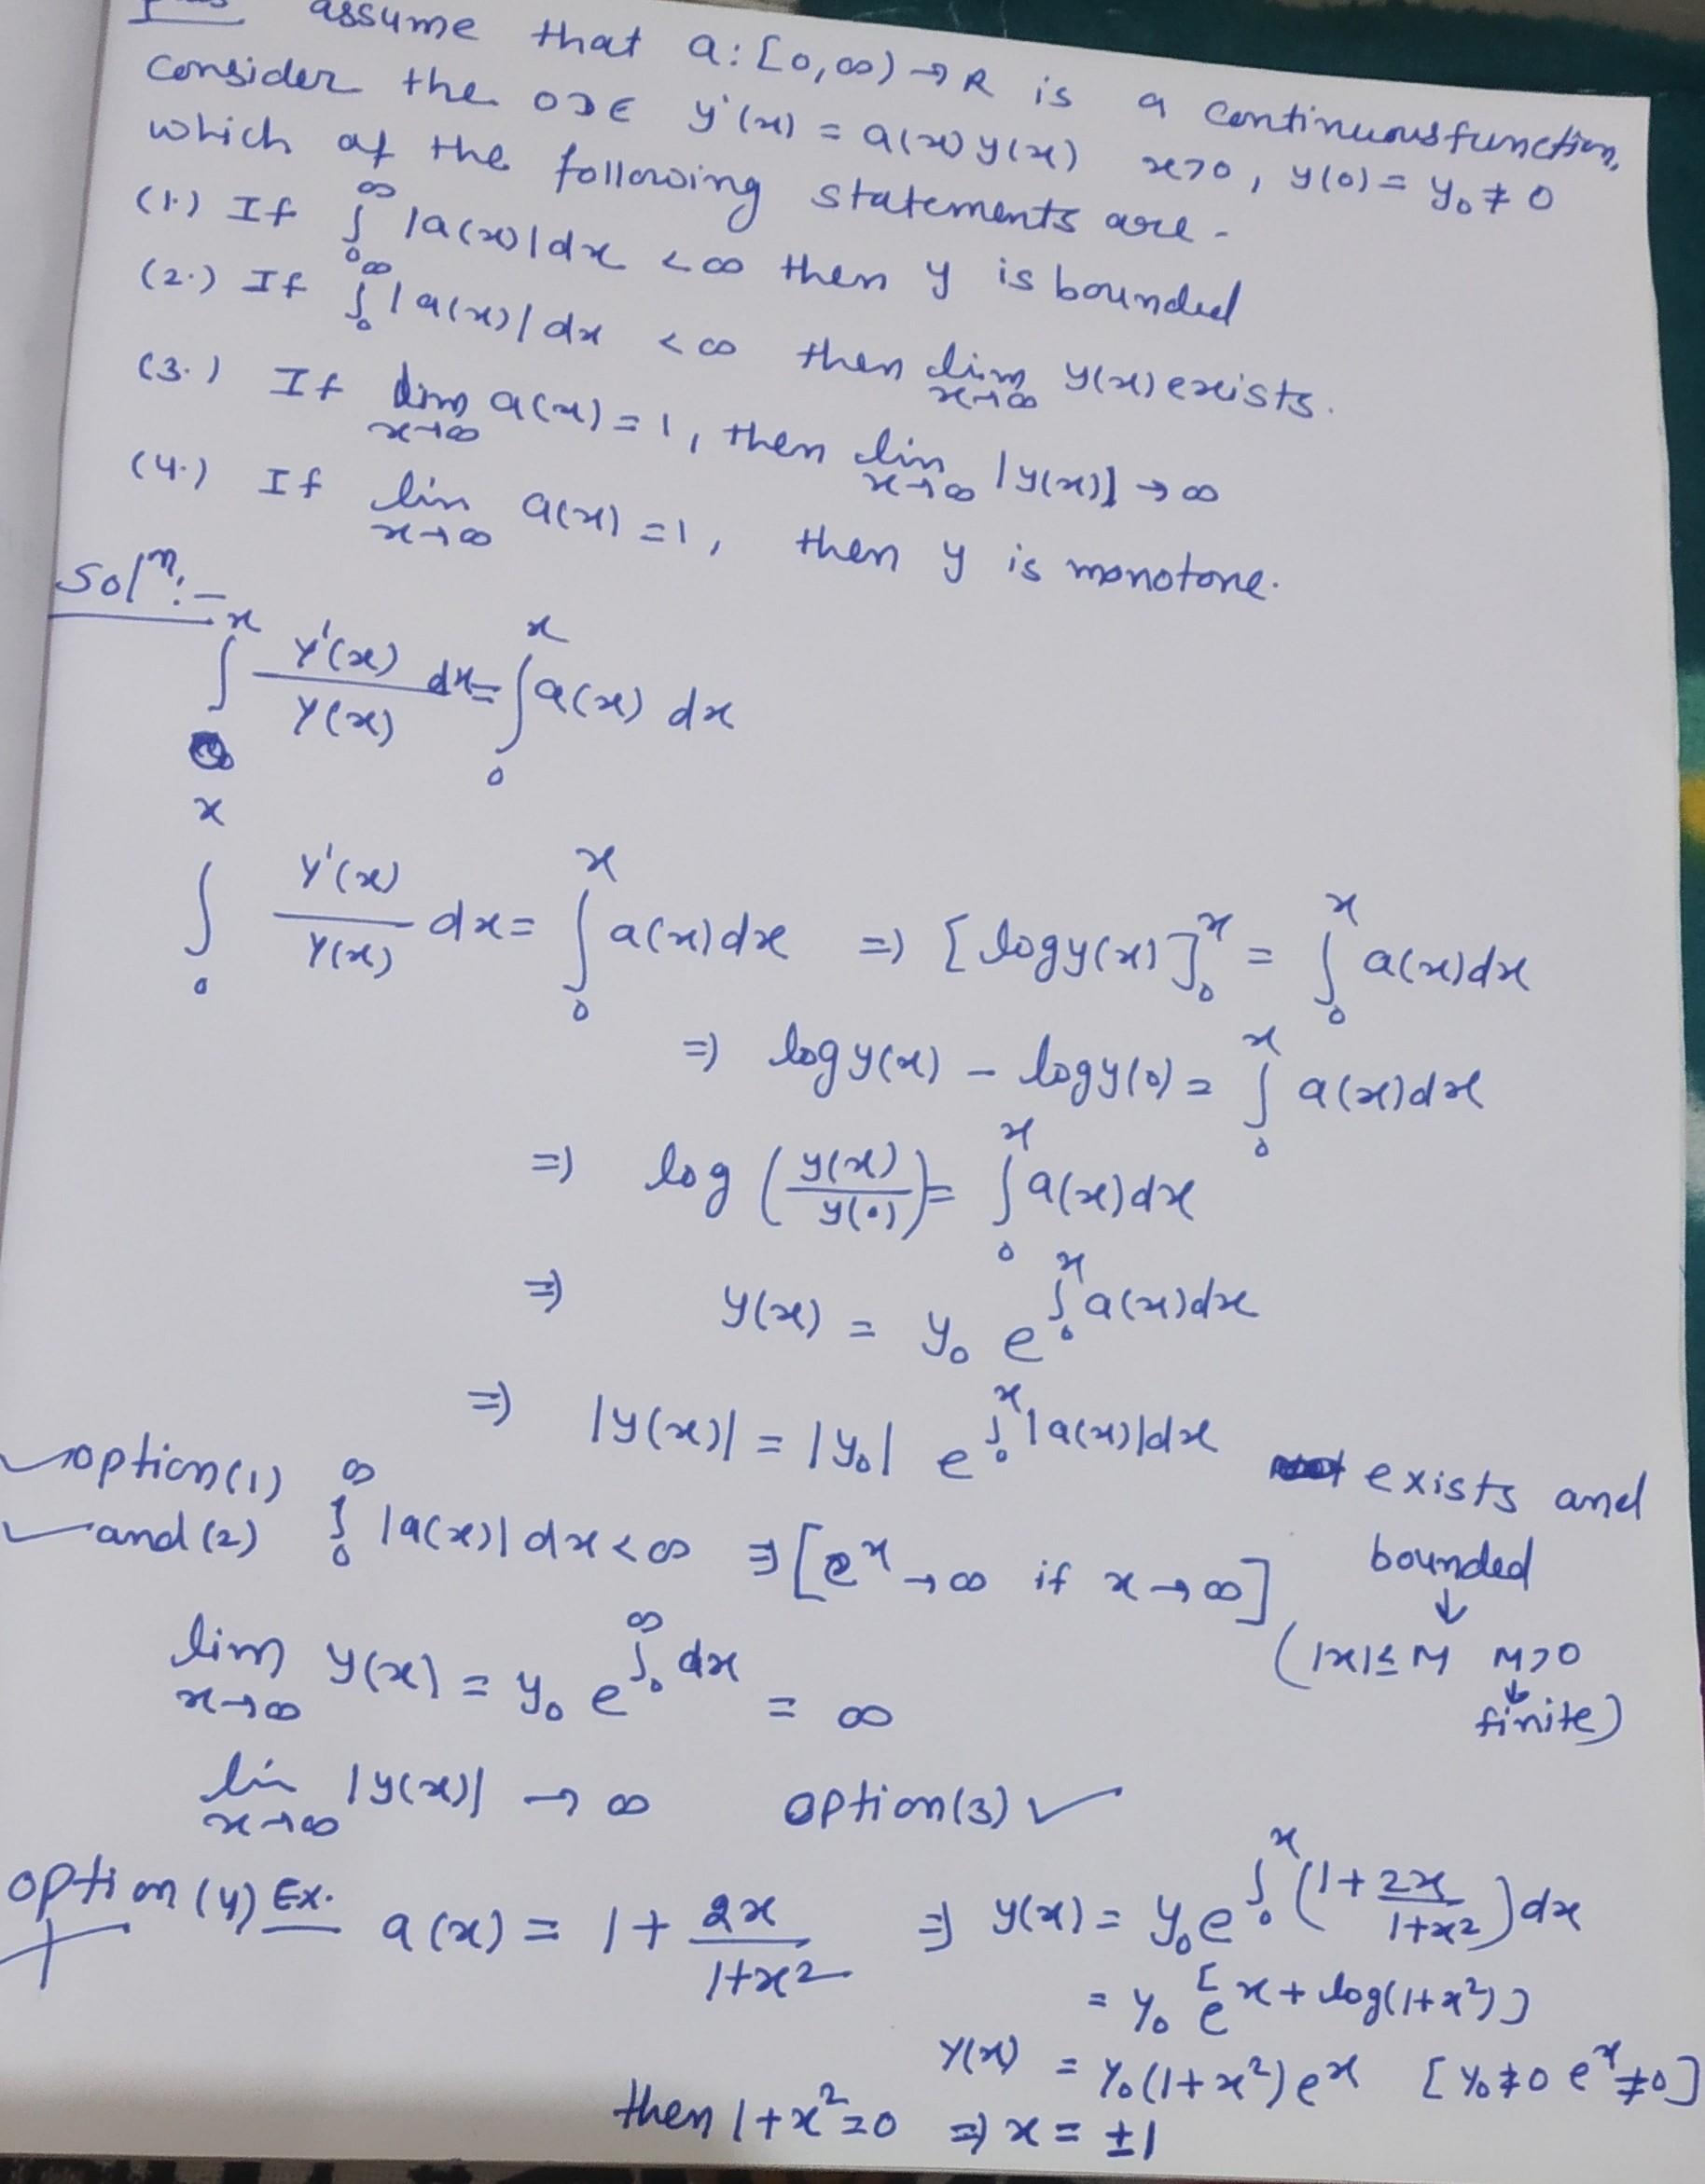 assume that a:[0,∞)→R is a continuous function,
consider the ODE y'(x) = a(x) y(x) x>0, y(0) = y₀ ≠ 0
which of the following statements are -
(1.) If ∫₀^∞ |a(x)|dx <∞ then y is bounded
(2.) If ∫₀^∞ |a(x)|dx <∞ then lim_{x→∞} y(x) exists.
(3.) If lim_{x→∞} a(x)=1, then lim_{x→∞} |y(x)| → ∞
(4.) If lin_{x→∞} a(x)=1, then y is monotone.
Solⁿ:-
∫^x Y'(x)/Y(x) dx = ∫₀^x a(x) dx
∫₀^x Y'(x)/Y(x) dx = ∫₀^x a(x)dx ⇒ [log y(x)]₀^x = ∫₀^x a(x)dx
⇒ log y(x) - log y(0) = ∫₀^x a(x)dx
⇒ log (y(x)/y(0)) = ∫₀^x a(x)dx
⇒ y(x) = y₀ e^{∫₀^x a(x)dx}
⇒ |y(x)| = |y₀| e^{∫₀^x |a(x)|dx} exists and
bounded
↓
(|x|≤M M>0
↓
finite)
✓option(1)
✓and (2) ∫₀^∞ |a(x)|dx<∞ ⇒ [e^x →∞ if x→∞]
lim_{x→∞} y(x) = y₀ e^{∫₀^∞ dx} = ∞
lin_{x→∞} |y(x)| → ∞ option(3) ✓
option (4) Ex. a(x) = 1 + 2x/(1+x²) ⇒ y(x) = y₀ e^{∫₀^x (1+2x/(1+x²))dx}
= y₀ e^{[x+log(1+x²)]}
Y(x) = y₀(1+x²)e^x [y₀≠0 e^x≠0]
then 1+x²=0 ⇒ x = ±1